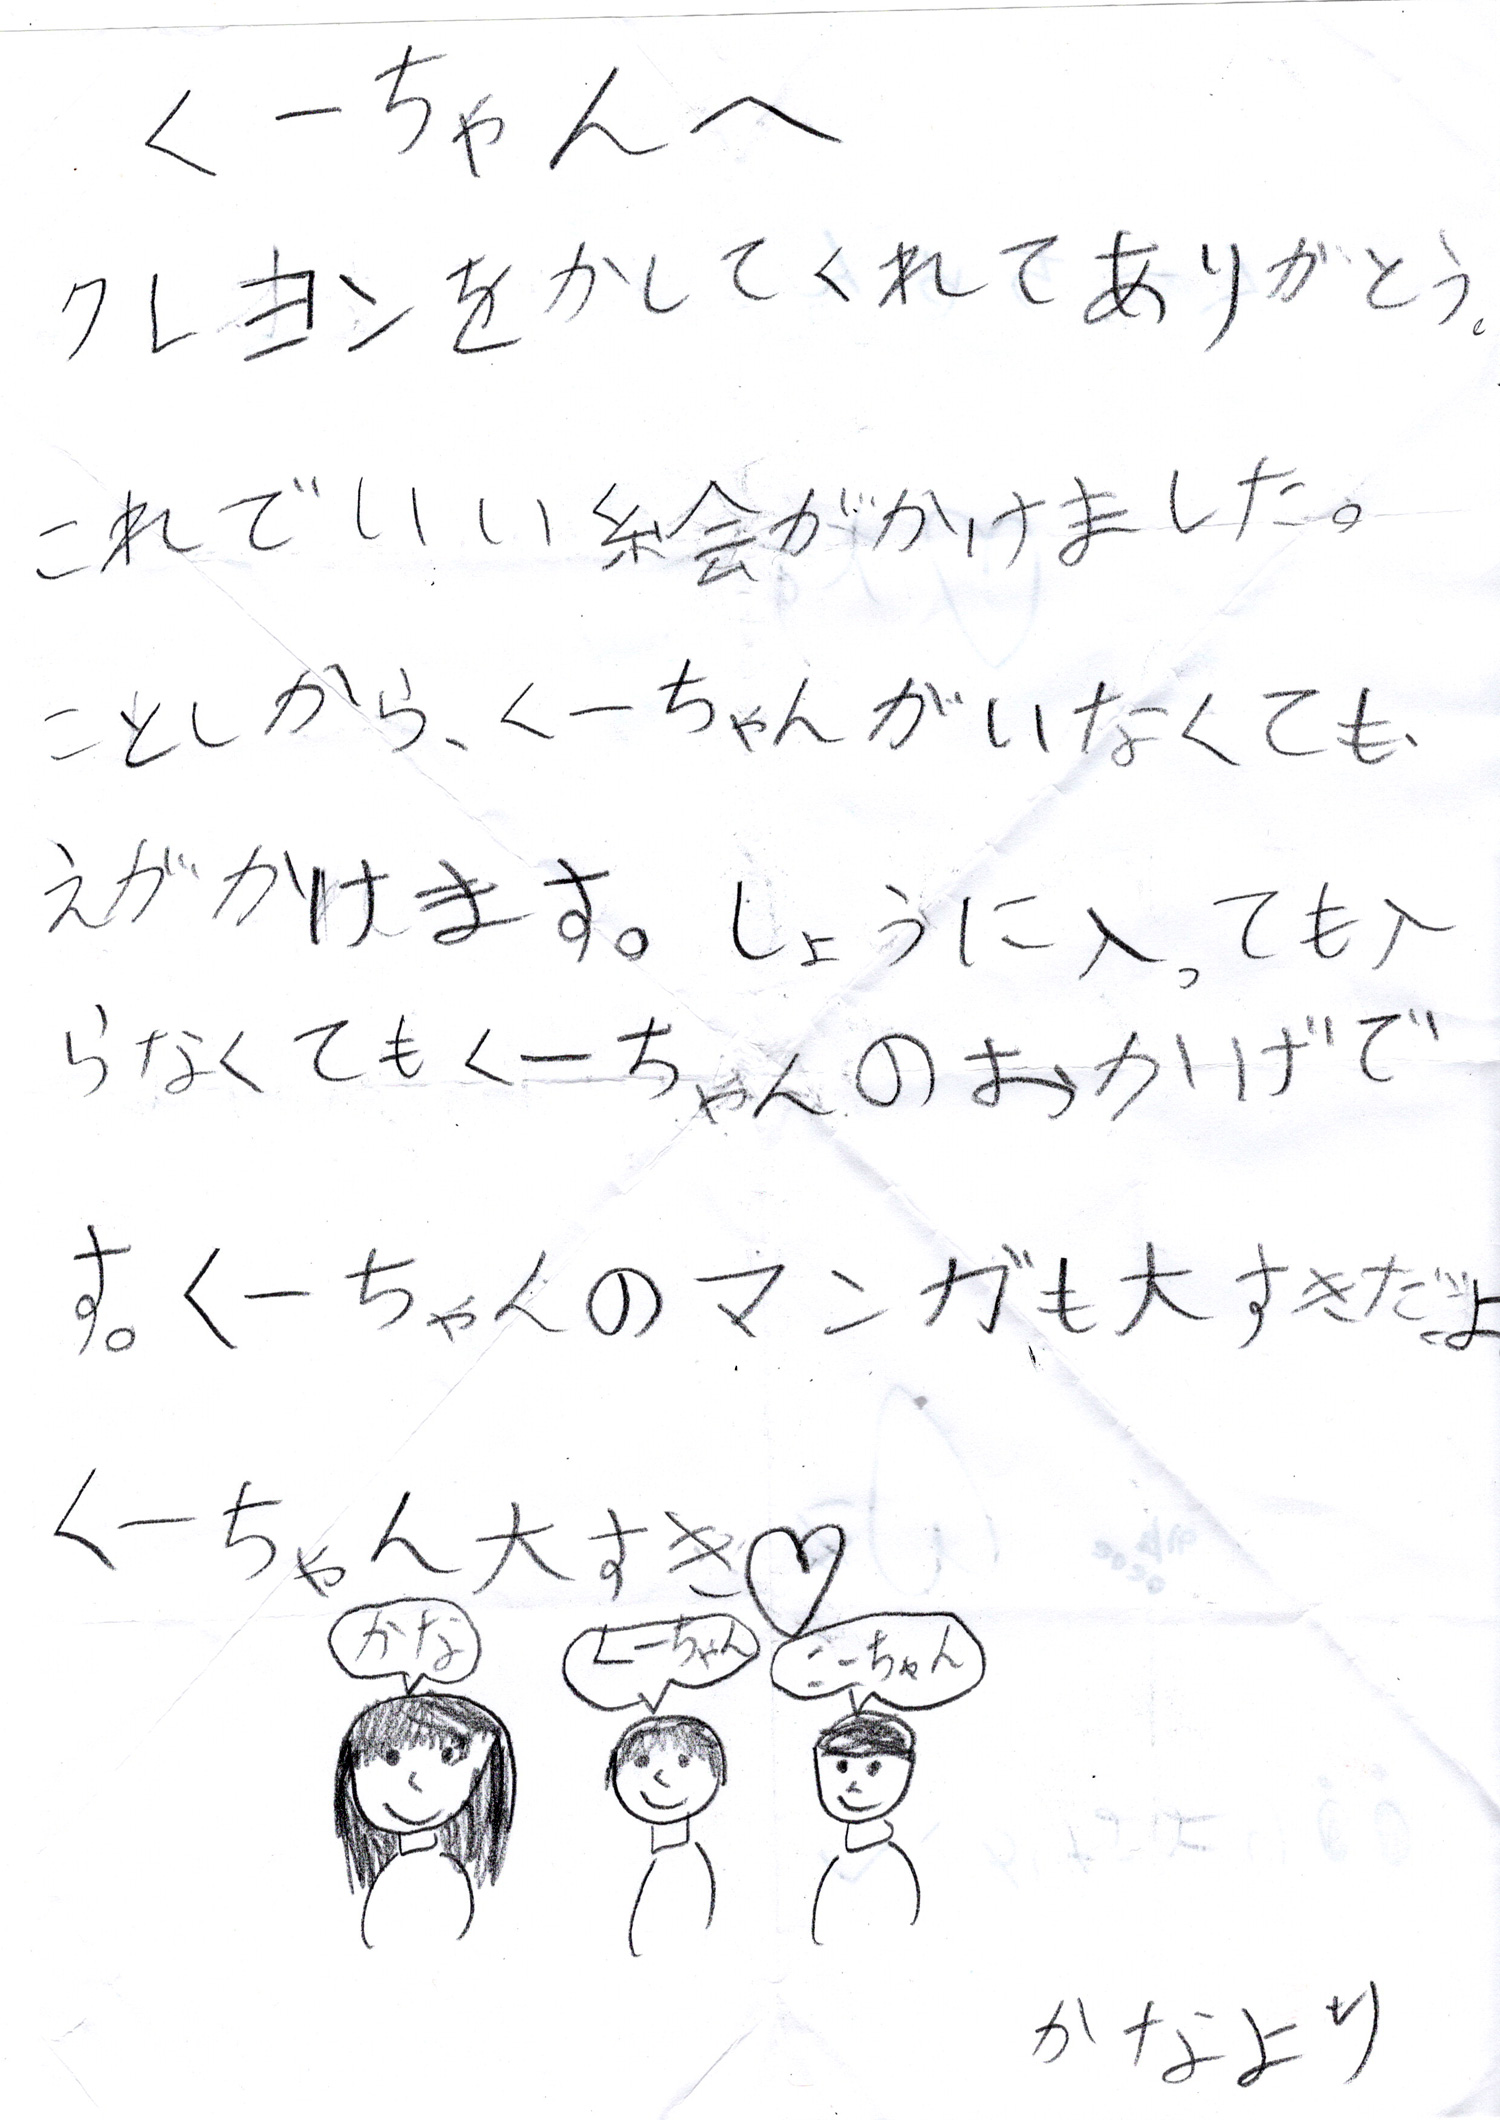 くーちゃんへ
クレヨンをかしてくれてありがとう。
これでいい絵がかけました。
ことしから、くーちゃんがいなくても
えがかけます。しょうに入っても入
らなくてもくーちゃんのおかげで
す。くーちゃんのマンガも大すきだよ
くーちゃん大すき♡
かな
くーちゃん
こーちゃん
かなより